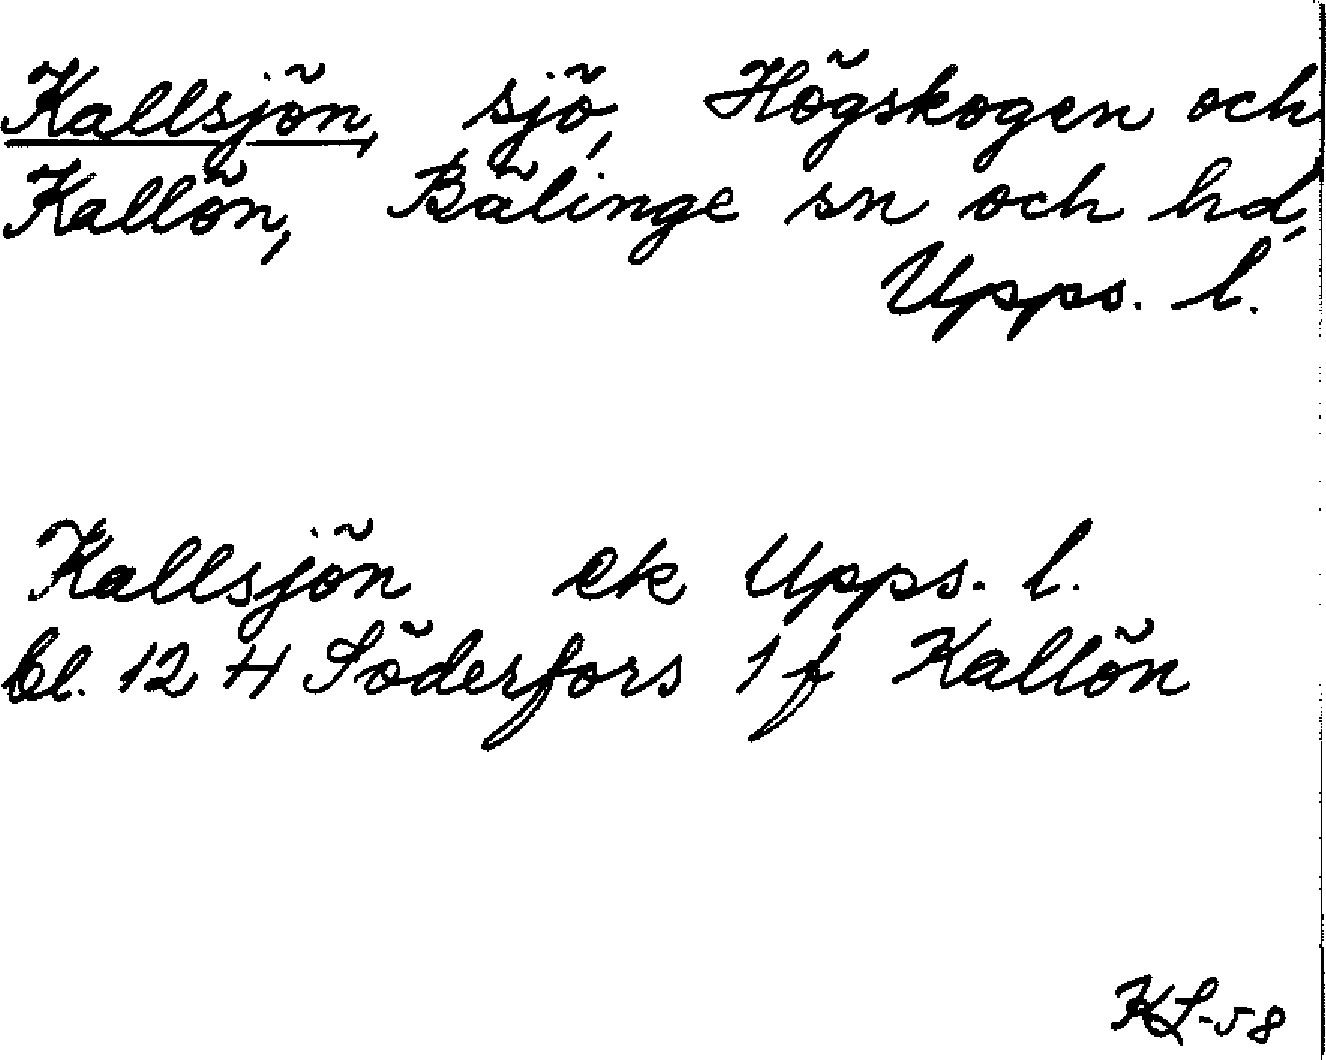 Kallsjön, sjö, Högskogen och
Kallön, Bälinge sn och hd,
Upps. l.
Kallsjön ek Upps. l.
bl. 12 H Söderfors 1 f Kallön
KL-58